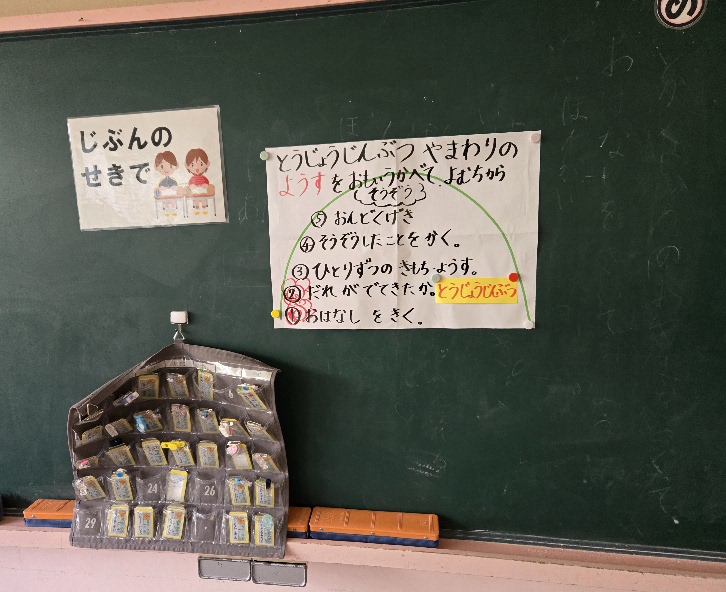 じぶんの
せきで
とうじょうじんぶつ やまわりの
ようすをおもいうかべて、よむちから
そうぞう
⑤ おんどくげき
④ そうぞうしたことをかく。
③ ひとりずつのきもち ようす。
② だれがでてきたか。とうじょうじんぶつ
① おはなしをきく。
6
24
26
29